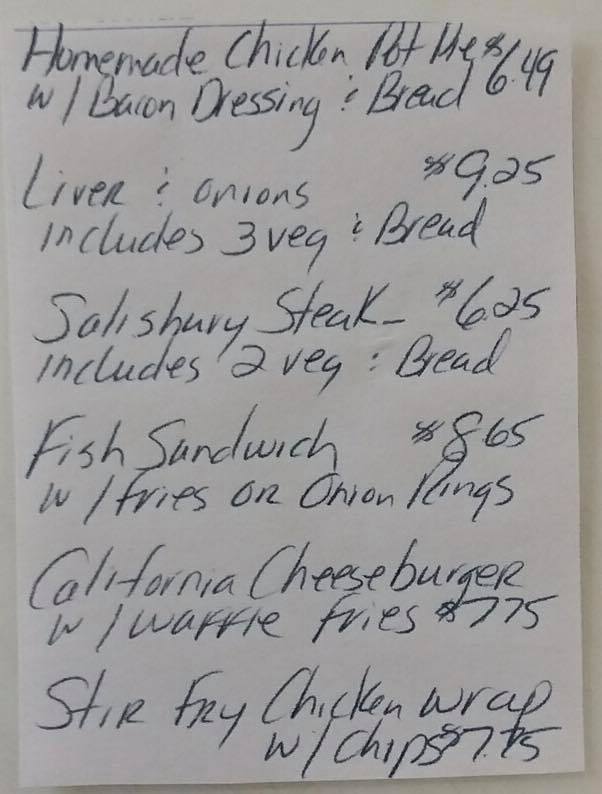 Homemade Chicken Pot Pie $6.49
w/ Bacon Dressing & Bread
Liver & onions $9.25
includes 3 veg & Bread
Salisbury Steak - $6.25
includes 2 veg & Bread
Fish Sandwich $8.65
w/ fries OR Onion Rings
California Cheeseburger
w/ waffle fries $7.75
Stir Fry Chicken wrap
w/ chips $7.75